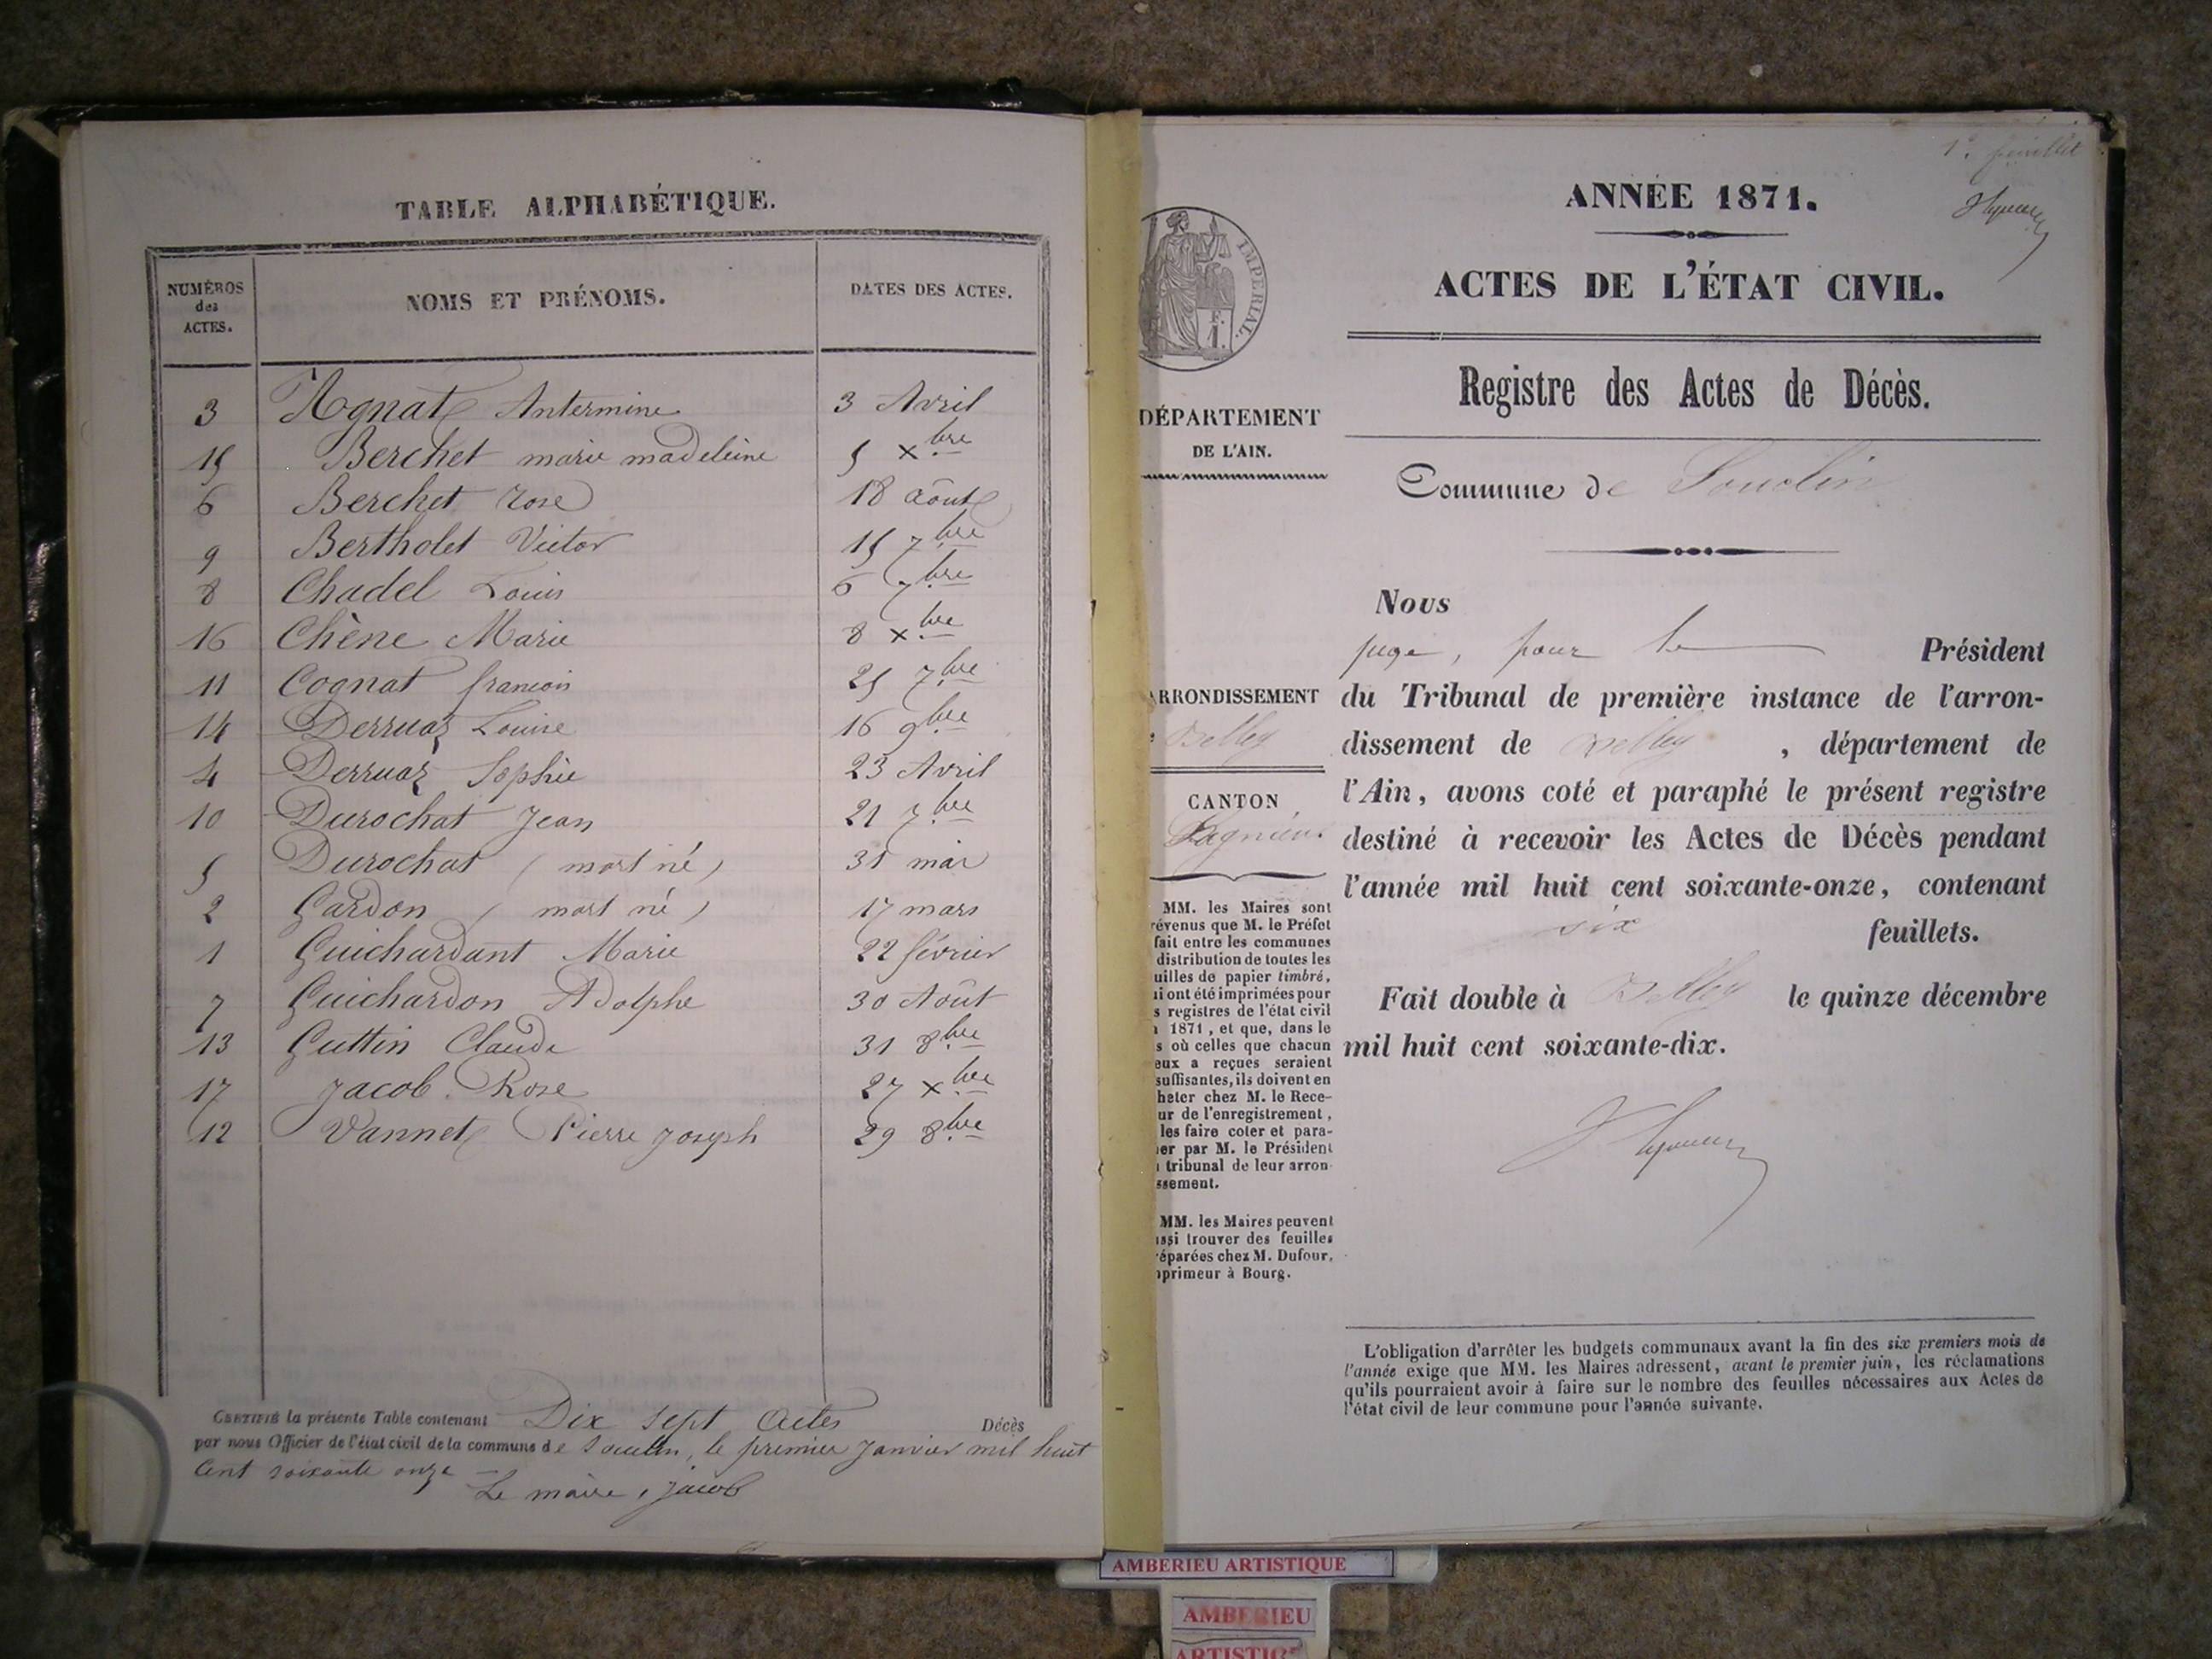 TABLE ALPHABÉTIQUE.
NUMÉROS
des
ACTES.
NOMS ET PRÉNOMS.
DATES DES ACTES.
3 Agnat Antermine 3 Avril
15 Berchet marie madeleine 5 Xbre
6 Berchet rose 18 août
9 Bertholet Victor 15 7bre
8 Chadel Louis 6 7bre
16 Chène Marie 8 Xbre
11 Cognat francois 25 7bre
14 Derruaz Louise 16 9bre
4 Derruaz Sophie 23 Avril
10 Durochat Jean 21 7bre
5 Durochat (mort né) 31 mai
2 Gardon (mort né) 17 mars
1 Guichardant Marie 22 février
7 Guichardon Adolphe 30 Août
13 Guttin Claude 31 8bre
17 Jacob Rose 27 Xbre
12 Vannet Pierre Joseph 29 8bre
CERTIFIÉ la présente Table contenant Dix sept Actes Décès
par nous Officier de l'état civil de la commune de Souclin, le premier Janvier mil huit
Cent soixante onze
Le maire, Jacob
1er feuillet
ANNÉE 1871.
ACTES DE L'ÉTAT CIVIL.
Registre des Actes de Décès.
Commune de Souclin
IMPERIAL.
F.
1.
DÉPARTEMENT
DE L'AIN.
ARRONDISSEMENT
Belley
CANTON
Lagnieu
MM. les Maires sont
révenus que M. le Préfet
fait entre les communes
distribution de toutes les
uilles de papier timbré,
ui ont été imprimées pour
s registres de l'état civil
1871, et que, dans le
s où celles que chacun
eux a reçues seraient
suffisantes, ils doivent en
heter chez M. le Rece-
ur de l'enregistrement,
les faire coter et para-
er par M. le Président
tribunal de leur arron-
ssement.
MM. les Maires peuvent
ussi trouver des feuilles
réparées chez M. Dufour,
primeur à Bourg.
Nous
juge, pour le Président
du Tribunal de première instance de l'arron-
dissement de Belley, département de
l'Ain, avons coté et paraphé le présent registre
destiné à recevoir les Actes de Décès pendant
l'année mil huit cent soixante-onze, contenant
six feuillets.
Fait double à Belley le quinze décembre
mil huit cent soixante-dix.
L'obligation d'arrêter les budgets communaux avant la fin des six premiers mois de
l'année exige que MM. les Maires adressent, avant le premier juin, les réclamations
qu'ils pourraient avoir à faire sur le nombre des feuilles nécessaires aux Actes de
l'état civil de leur commune pour l'année suivante.
AMBERIEU ARTISTIQUE
AMBERIEU
ARTISTIQUE